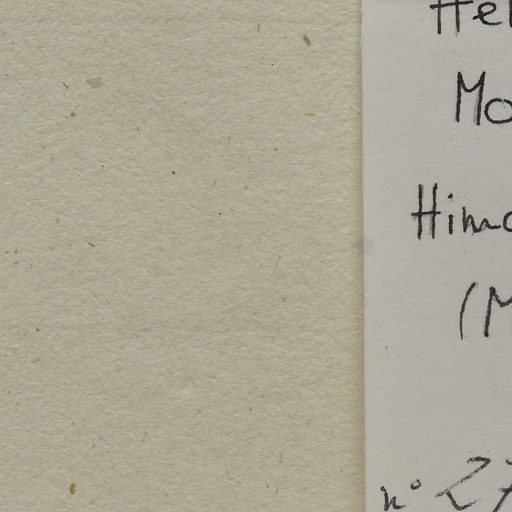 Hel
Mo
Hima
(M
n° 27